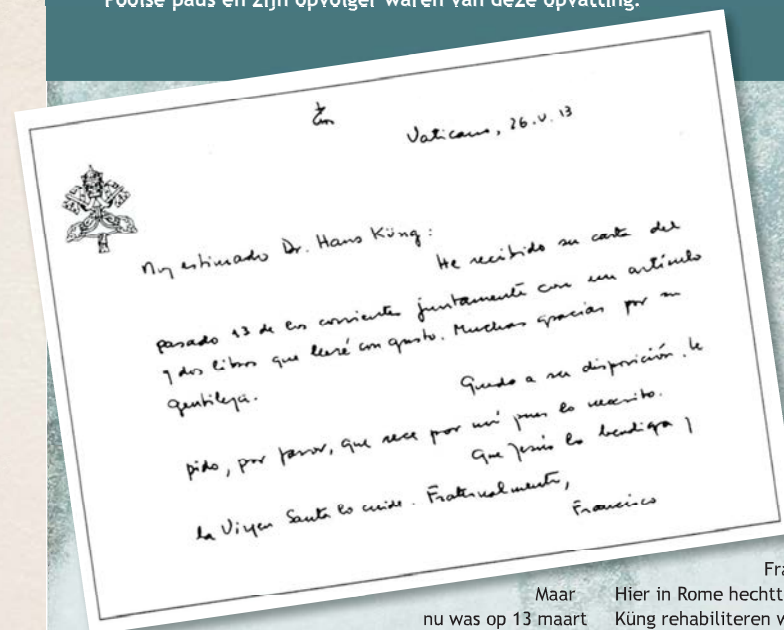 Poolse paus en zijn opvolger waren van deze opvatting.
Vaticano, 26.V.13
Muy estimado Dr. Hans Küng:
He recibido su carta del
pasado 13 de los corrientes juntamente con un artículo
y dos libros que leeré con gusto. Muchas gracias por su
gentileza.
Quedo a su disposición. Le
pido, por favor, que rece por mí pues lo necesito.
Que Jesús lo bendiga y
la Virgen Santa lo cuide. Fraternalmente,
Francisco
Fra
Maar
Hier in Rome hechtt
nu was op 13 maart
Küng rehabiliteren